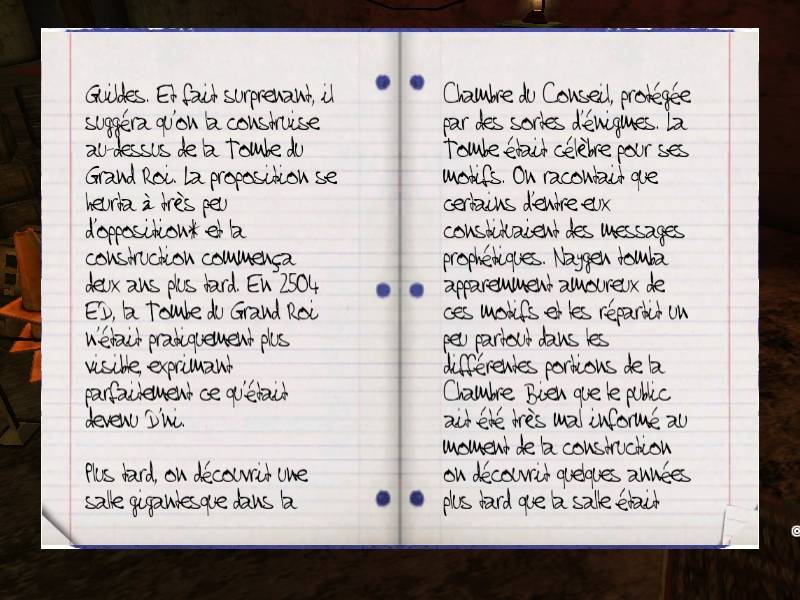 Guildes. Et fait surprenant, il
suggéra qu'on la construise
au-dessus de la Tombe du
Grand Roi. La proposition se
heurta à très peu
d'opposition* et la
construction commença
deux ans plus tard. En 2504
ED, la Tombe du Grand Roi
n'était pratiquement plus
visible, exprimant
parfaitement ce qu'était
devenu D'ni.
Plus tard, on découvrit une
salle gigantesque dans la
Chambre du Conseil, protégée
par des sortes d'énigmes. La
Tombe était célèbre pour ses
motifs. On racontait que
certains d'entre eux
constituaient des messages
prophétiques. Naygen tomba
apparemment amoureux de
ces motifs et les répartit un
peu partout dans les
différentes portions de la
Chambre. Bien que le public
ait été très mal informé au
moment de la construction
on découvrit quelques années
plus tard que la salle était